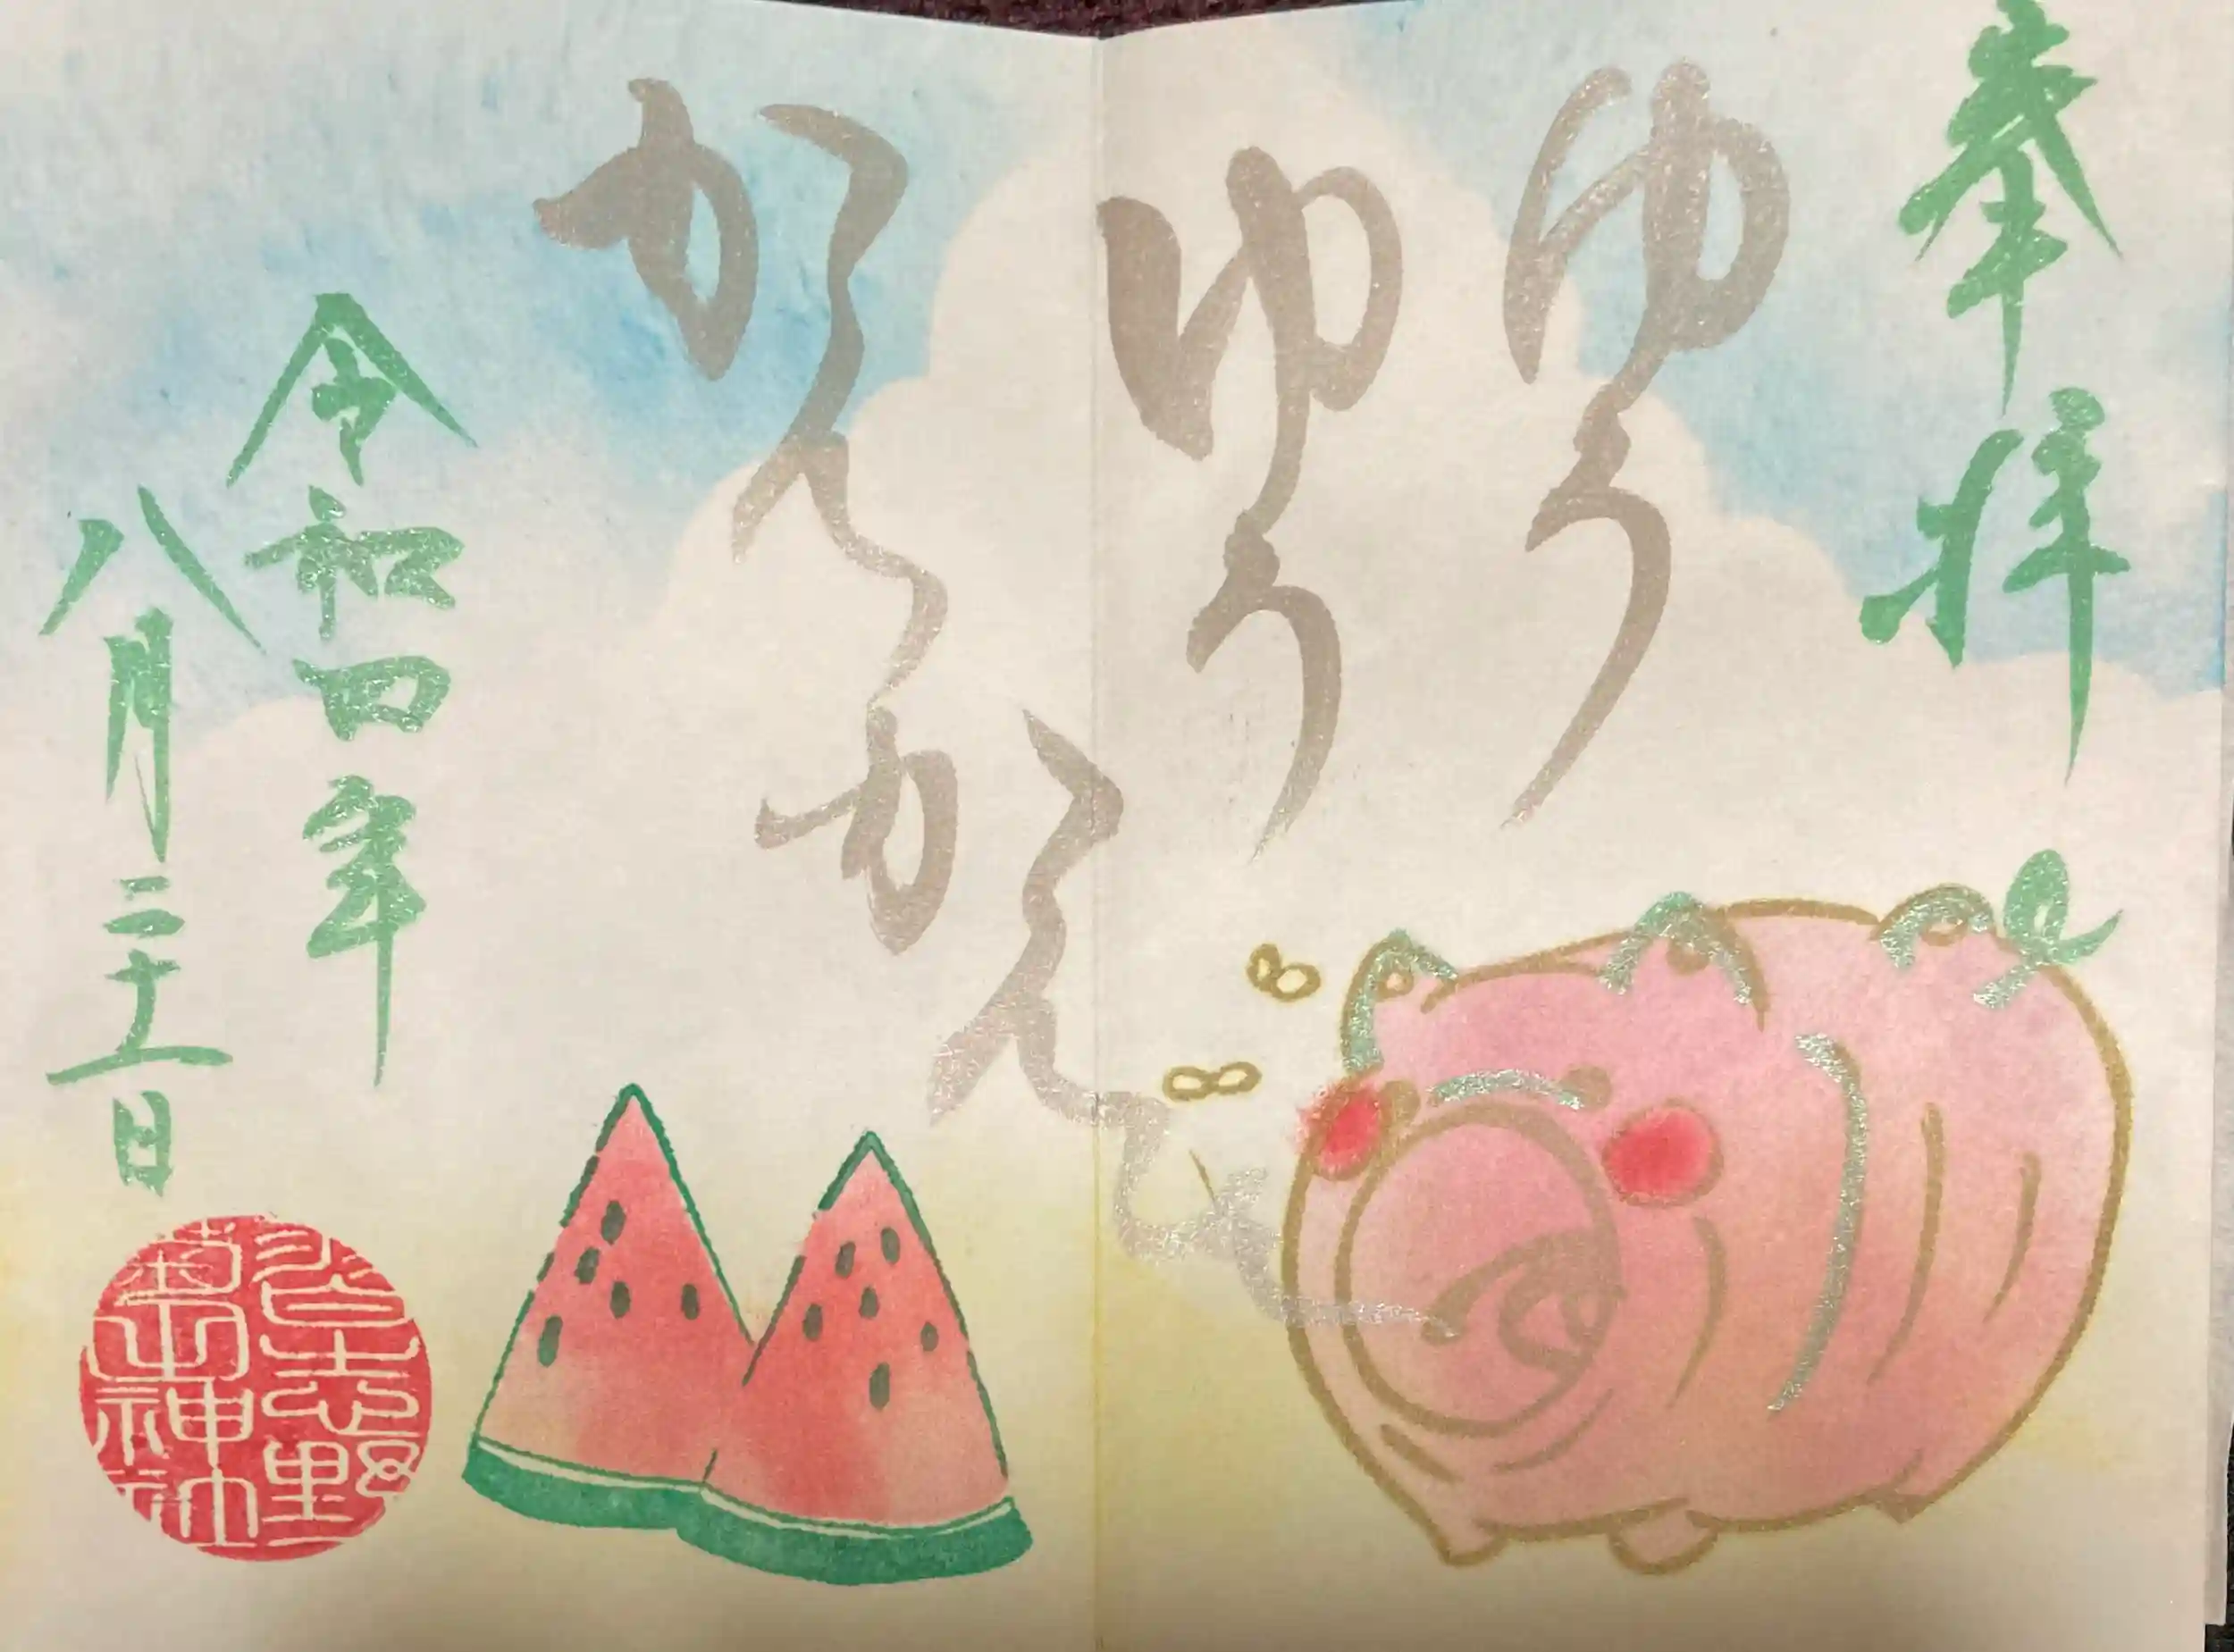 奉拝
ゆう
ゆう
かん
かん
令和四年
八月二十一日